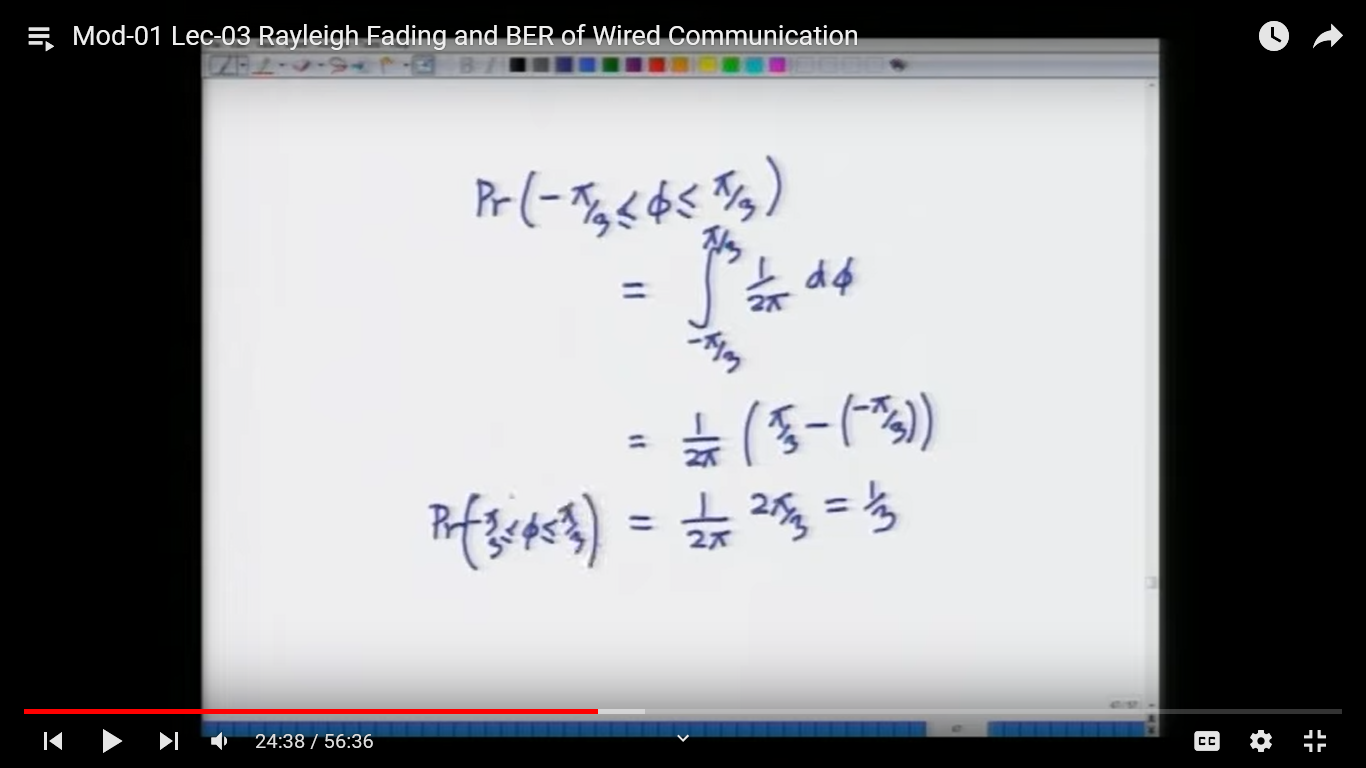 Mod-01 Lec-03 Rayleigh Fading and BER of Wired Communication
Pr(-π/3 ≤ ϕ ≤ π/3)
= ∫_{-π/3}^{π/3} 1/2π dϕ
= 1/2π (π/3 - (-π/3))
Pr(-π/3 ≤ ϕ ≤ π/3) = 1/2π 2π/3 = 1/3
24:38 / 56:36
CC